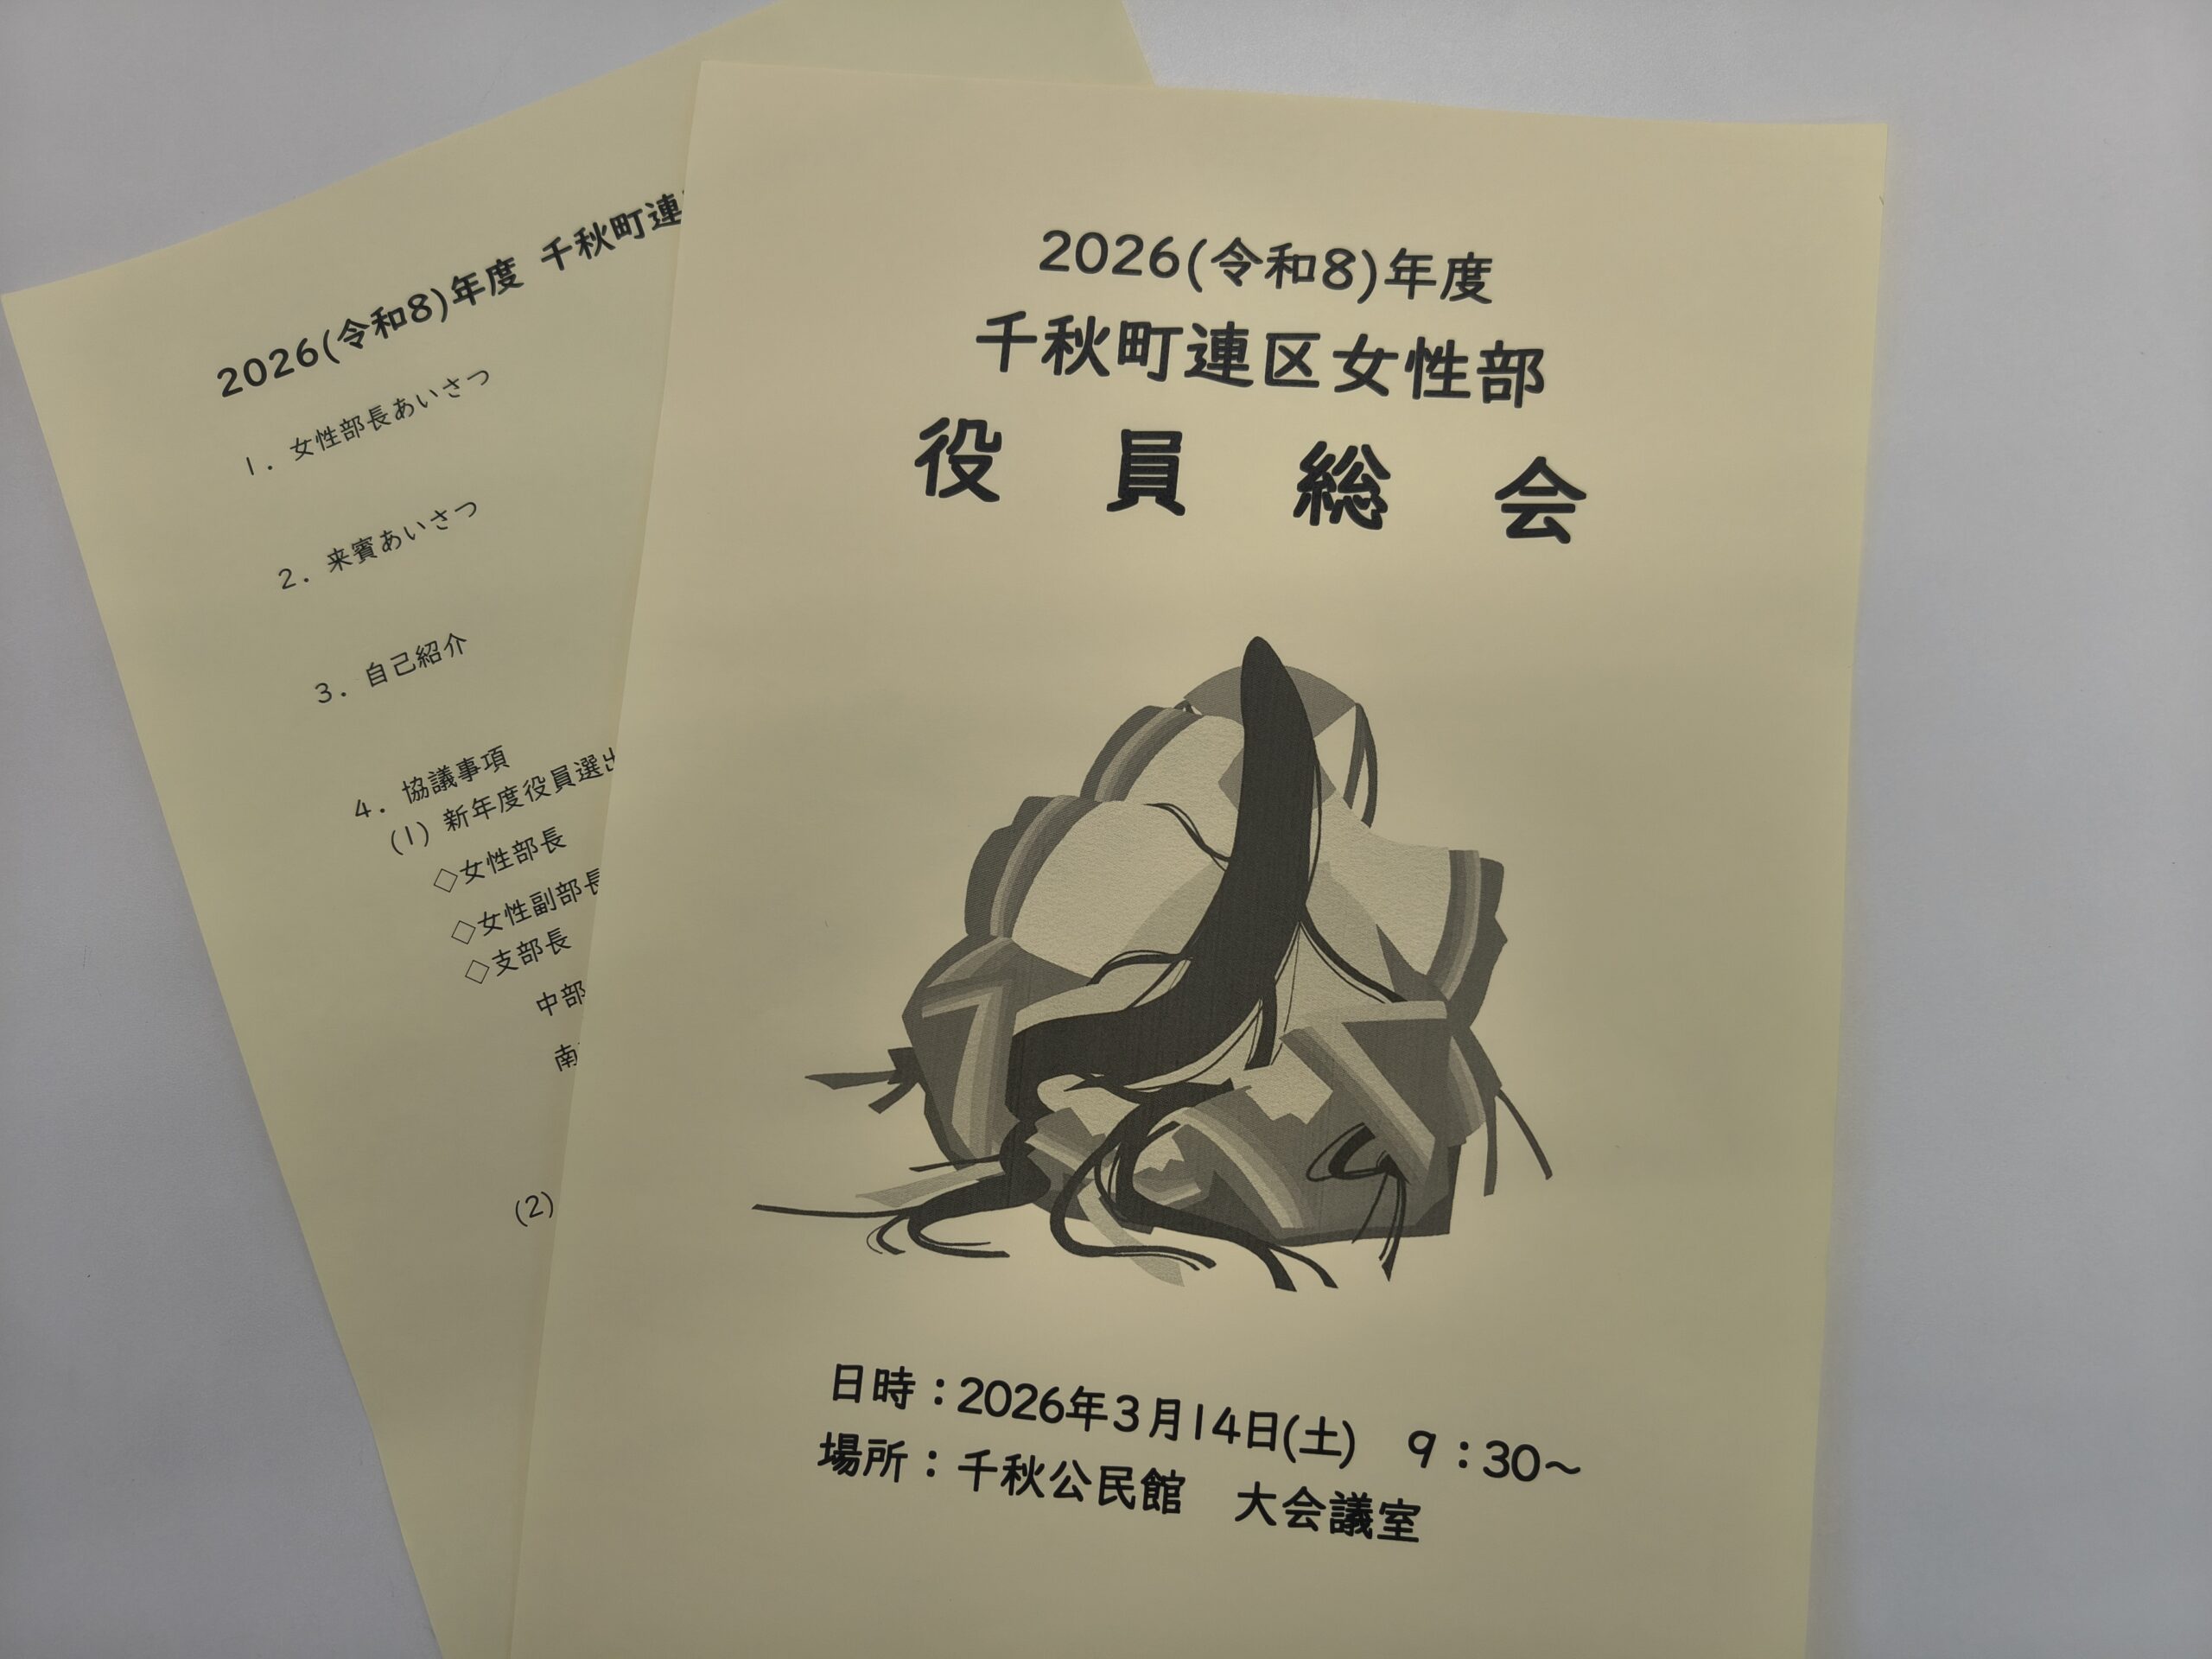 2026(令和8)年度
千秋町連区女性部
役員総会
日時：2026年3月14日(土)　9：30～
場所：千秋公民館　大会議室
2026(令和8)年度 千秋町連
1．女性部長あいさつ
2．来賓あいさつ
3．自己紹介
4．協議事項
(1) 新年度役員選出
◇女性部長
◇女性副部長
◇支部長
中部
南
(2)